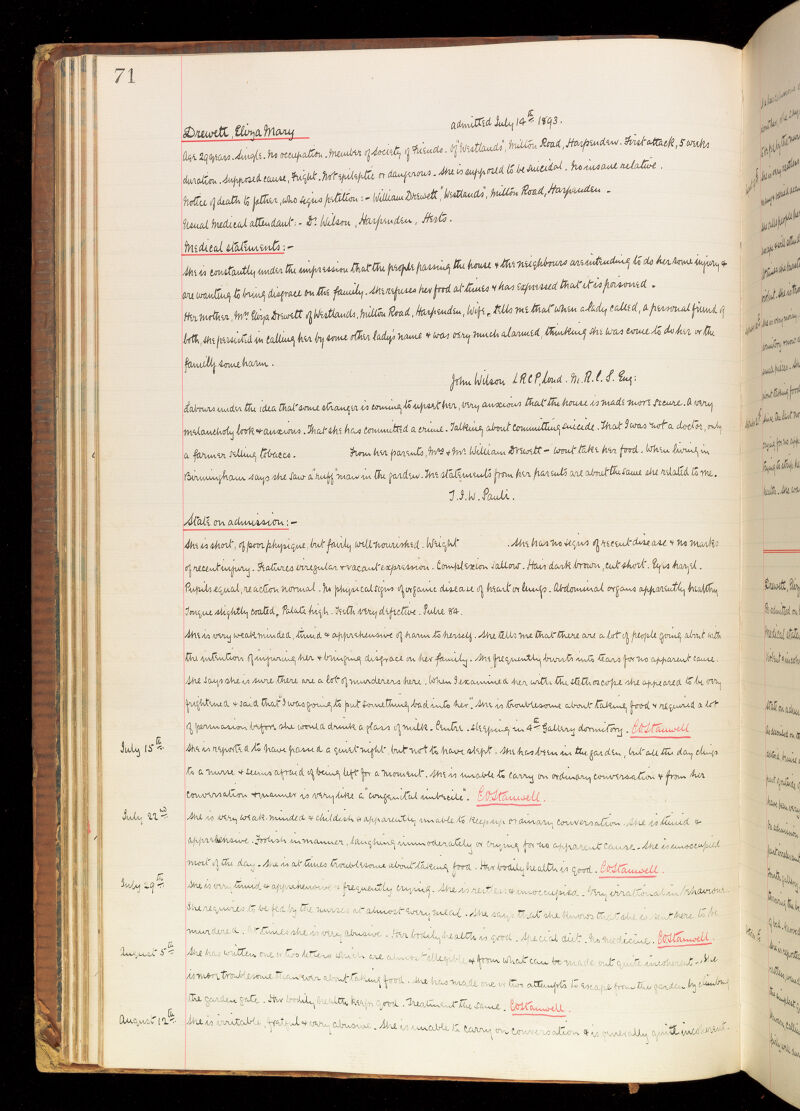 71
Drewett, Eliza Mary admitted July 14th 1893.
Age 29 years. Single. No occupation. Member of Society of Friends. Of "Westlands", Milton Road, Harpenden. First attack, 5 weeks
duration. Supposed cause, Fright. Not epileptic or dangerous. She is supposed to be suicidal. No insane relative.
Notice of death to father, who signs petition:- William Drewett "Westlands", Milton Road, Harpenden.
Usual Medical attendant:- Dr. Wilson, Harpenden, Herts.
Medical Statements:-
She is constantly under the impression that the people passing the house & the neighbours are intending to do her some injury &
are wanting to bring disgrace on the family. She refuses her food at times & has expressed that it is poisoned.
Her mother, Mrs. Eliza Drewett of Westlands, Milton Road, Harpenden, Wife, tells me that when a lady called, a personal friend of
both, she persisted in calling her by some other lady's name & was very much alarmed, thinking she was come to do her or the
family some harm.
John Wilson L.R.C.P. Lond. M.R.C.S. Eng:
Labours under the idea that some stranger is coming to upset her, very anxious that the house is made more secure. A very
melancholy look & anxious. That she has committed a crime. Talking about committing suicide. That I was not a doctor, only
a farmer selling tobacco. From her parents, Mrs & Mr William Drewett - wont take her food. When living in
Birmingham says she saw a "ruff" man in the garden. The statements from her parents are about the same she related to me.
T.J.W. Pauli.
State on admission:-
She is short, of poor physique, but fairly well nourished. Weight She has no signs of recent disease & no marks
of recent injury. Features irregular & vacant expression. Complexion sallow. Hair dark brown, cut short. Eyes hazel.
Pupils equal, reaction normal. No physical signs of organic disease of heart or lungs. Abdominal organs apparently healthy.
Tongue slightly coated. Palate high. Teeth very defective. Pulse 84.
She is very weak minded, timid & apprehensive of harm to herself. She tells me that there are a lot of people going about with
the intention of injuring her & bringing disgrace on her family. She frequently bursts into tears for no apparent cause.
She says she is sure there are a lot of murderers here. When I examined her with the stethoscope she appeared to be very
frightened & said that "I was going to put something bad into her". She is troublesome about taking food & required a lot
of persuasion before she would drink a glass of milk. Centre. Sleeping in 4th Gallery dormitory. COStanwell
July 15th. She is reported to have passed a quiet night, but not to have slept. She has been in the garden, but all the day clings
to a nurse & seems afraid of being left for a moment. She is unable to carry on ordinary conversation & from her
conversation & manner is very like a "congenital imbecile". COStanwell.
July 22nd She is very weak minded & childish & apparently unable to keep up ordinary conversation. She is timid &
apprehensive. Foolish in manner, laughing immoderately or crying for no apparent cause. She is unoccupied
most of the day. She is at times troublesome about taking food. Her bodily health is good. COStanwell.
July 29th She is very timid & apprehensive & frequently crying. She is restless & unoccupied. Very irrational in behaviour.
She requires to be fed by the nurses at almost every meal. She says that she knows that she is sent here to be
murdered. At times she is very abusive. Her bodily health is good. Special diet. No medicine. COStanwell.
August 5th She has written one or two letters which are almost illegible & from what can be made out quite incoherent. She
is more troublesome than ever about taking food. She has made one or two attempts to escape from the garden by climbing
the garden gate. Her bodily health keeps good. Treatment the same. COStanwell.
August 12th. She is irritable, fretful & very abusive. She is unable to carry on conversation & is generally quite incoherent.